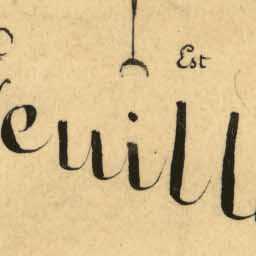 Est
euill